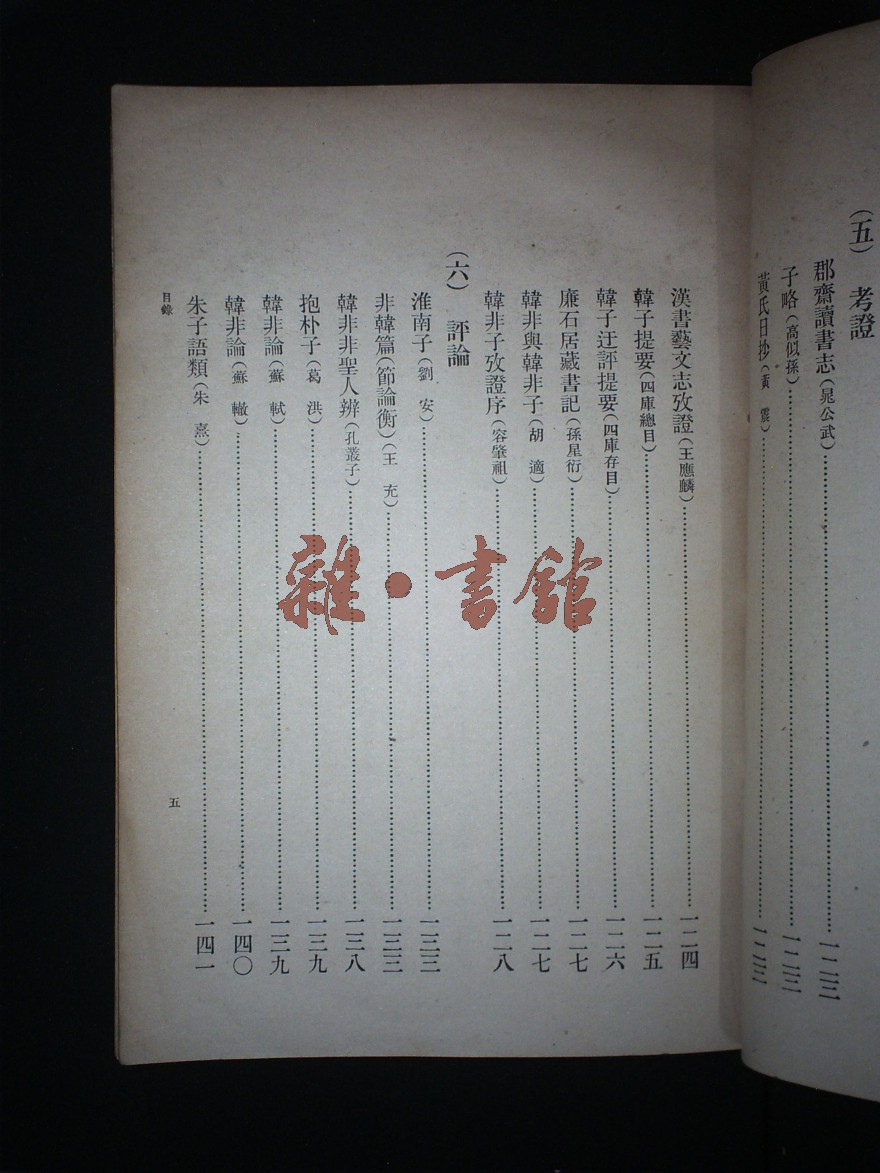 （五） 考證
郡齋讀書志（晁公武）……一二三
子略（高似孫）……一二三
黃氏日抄（黃 震）……一二三
漢書藝文志攷證（王應麟）……一二四
韓子提要（四庫總目）……一二五
韓子迂評提要（四庫存目）……一二六
廉石居藏書記（孫星衍）……一二七
韓非與韓非子（胡 適）……一二七
韓非子攷證序（容肇祖）……一二八
（六） 評論
淮南子（劉 安）……一三三
非韓篇（節論衡）（王 充）……一三三
韓非非聖人辨（孔叢子）……一三八
抱朴子（葛 洪）……一三九
韓非論（蘇 軾）……一三九
韓非論（蘇 轍）……一四〇
朱子語類（朱 熹）……一四一
目錄
五
雜·書館